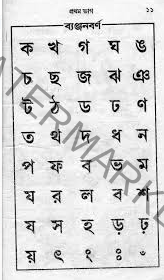 প্রথম ভাগ ১১
ব্যঞ্জনবর্ণ
ক খ গ ঘ ঙ
চ ছ জ ঝ ঞ
ট ঠ ড ঢ ণ
ত থ দ ধ ন
প ফ ব ভ ম
য র ল ব শ
ষ স হ ড় ঢ়
য় ৎ ং ঃ ঁ